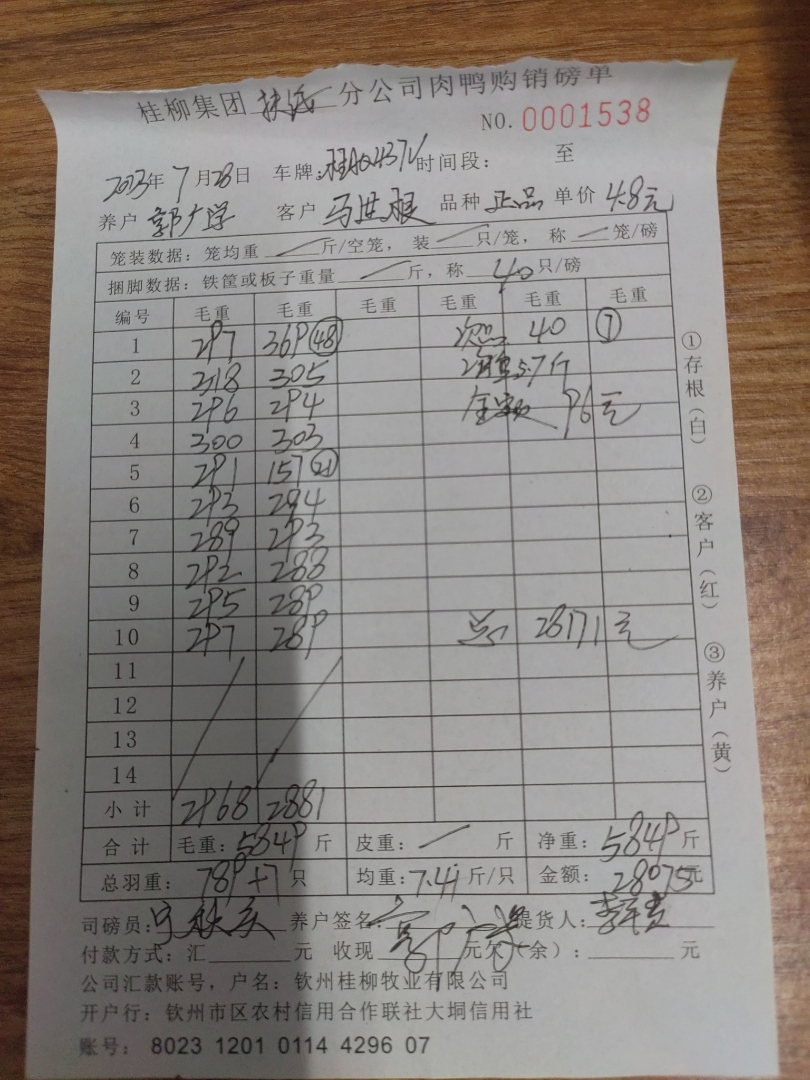 桂柳集团 分公司肉鸭购销磅单
NO. 0001538
2023年 7 月 28 日 车牌: 时间段: 至
养户 郭大学 客户 马世根 品种 正品 单价 4.8元
笼装数据: 笼均重 斤/空笼, 装 只/笼, 称 笼/磅
捆脚数据: 铁筐或板子重量 斤, 称 40 只/磅
编号 毛重 毛重 毛重 毛重 毛重 毛重
1 297 369 (48) 次品 40 ⑦
2 318 305 5.7斤
3 296 294 金额 96元
4 300 303
5 291 157 (21)
6 293 294
7 289 293
8 292 288
9 295 289
10 297 289 总: 28171元
11
12
13
14
小计 2968 2881
合计 毛重: 5849 斤 皮重: 斤 净重: 5849 斤
总羽重: 789+7 只 均重: 7.41 斤/只 金额: 28075元
司磅员: 养户签名: 提货人:
付款方式: 汇 元 收现 元欠(余): 元
公司汇款账号, 户名: 钦州桂柳牧业有限公司
开户行: 钦州市区农村信用合作联社大垌信用社
账号: 8023 1201 0114 4296 07
①存根(白)
②客户(红)
③养户(黄)